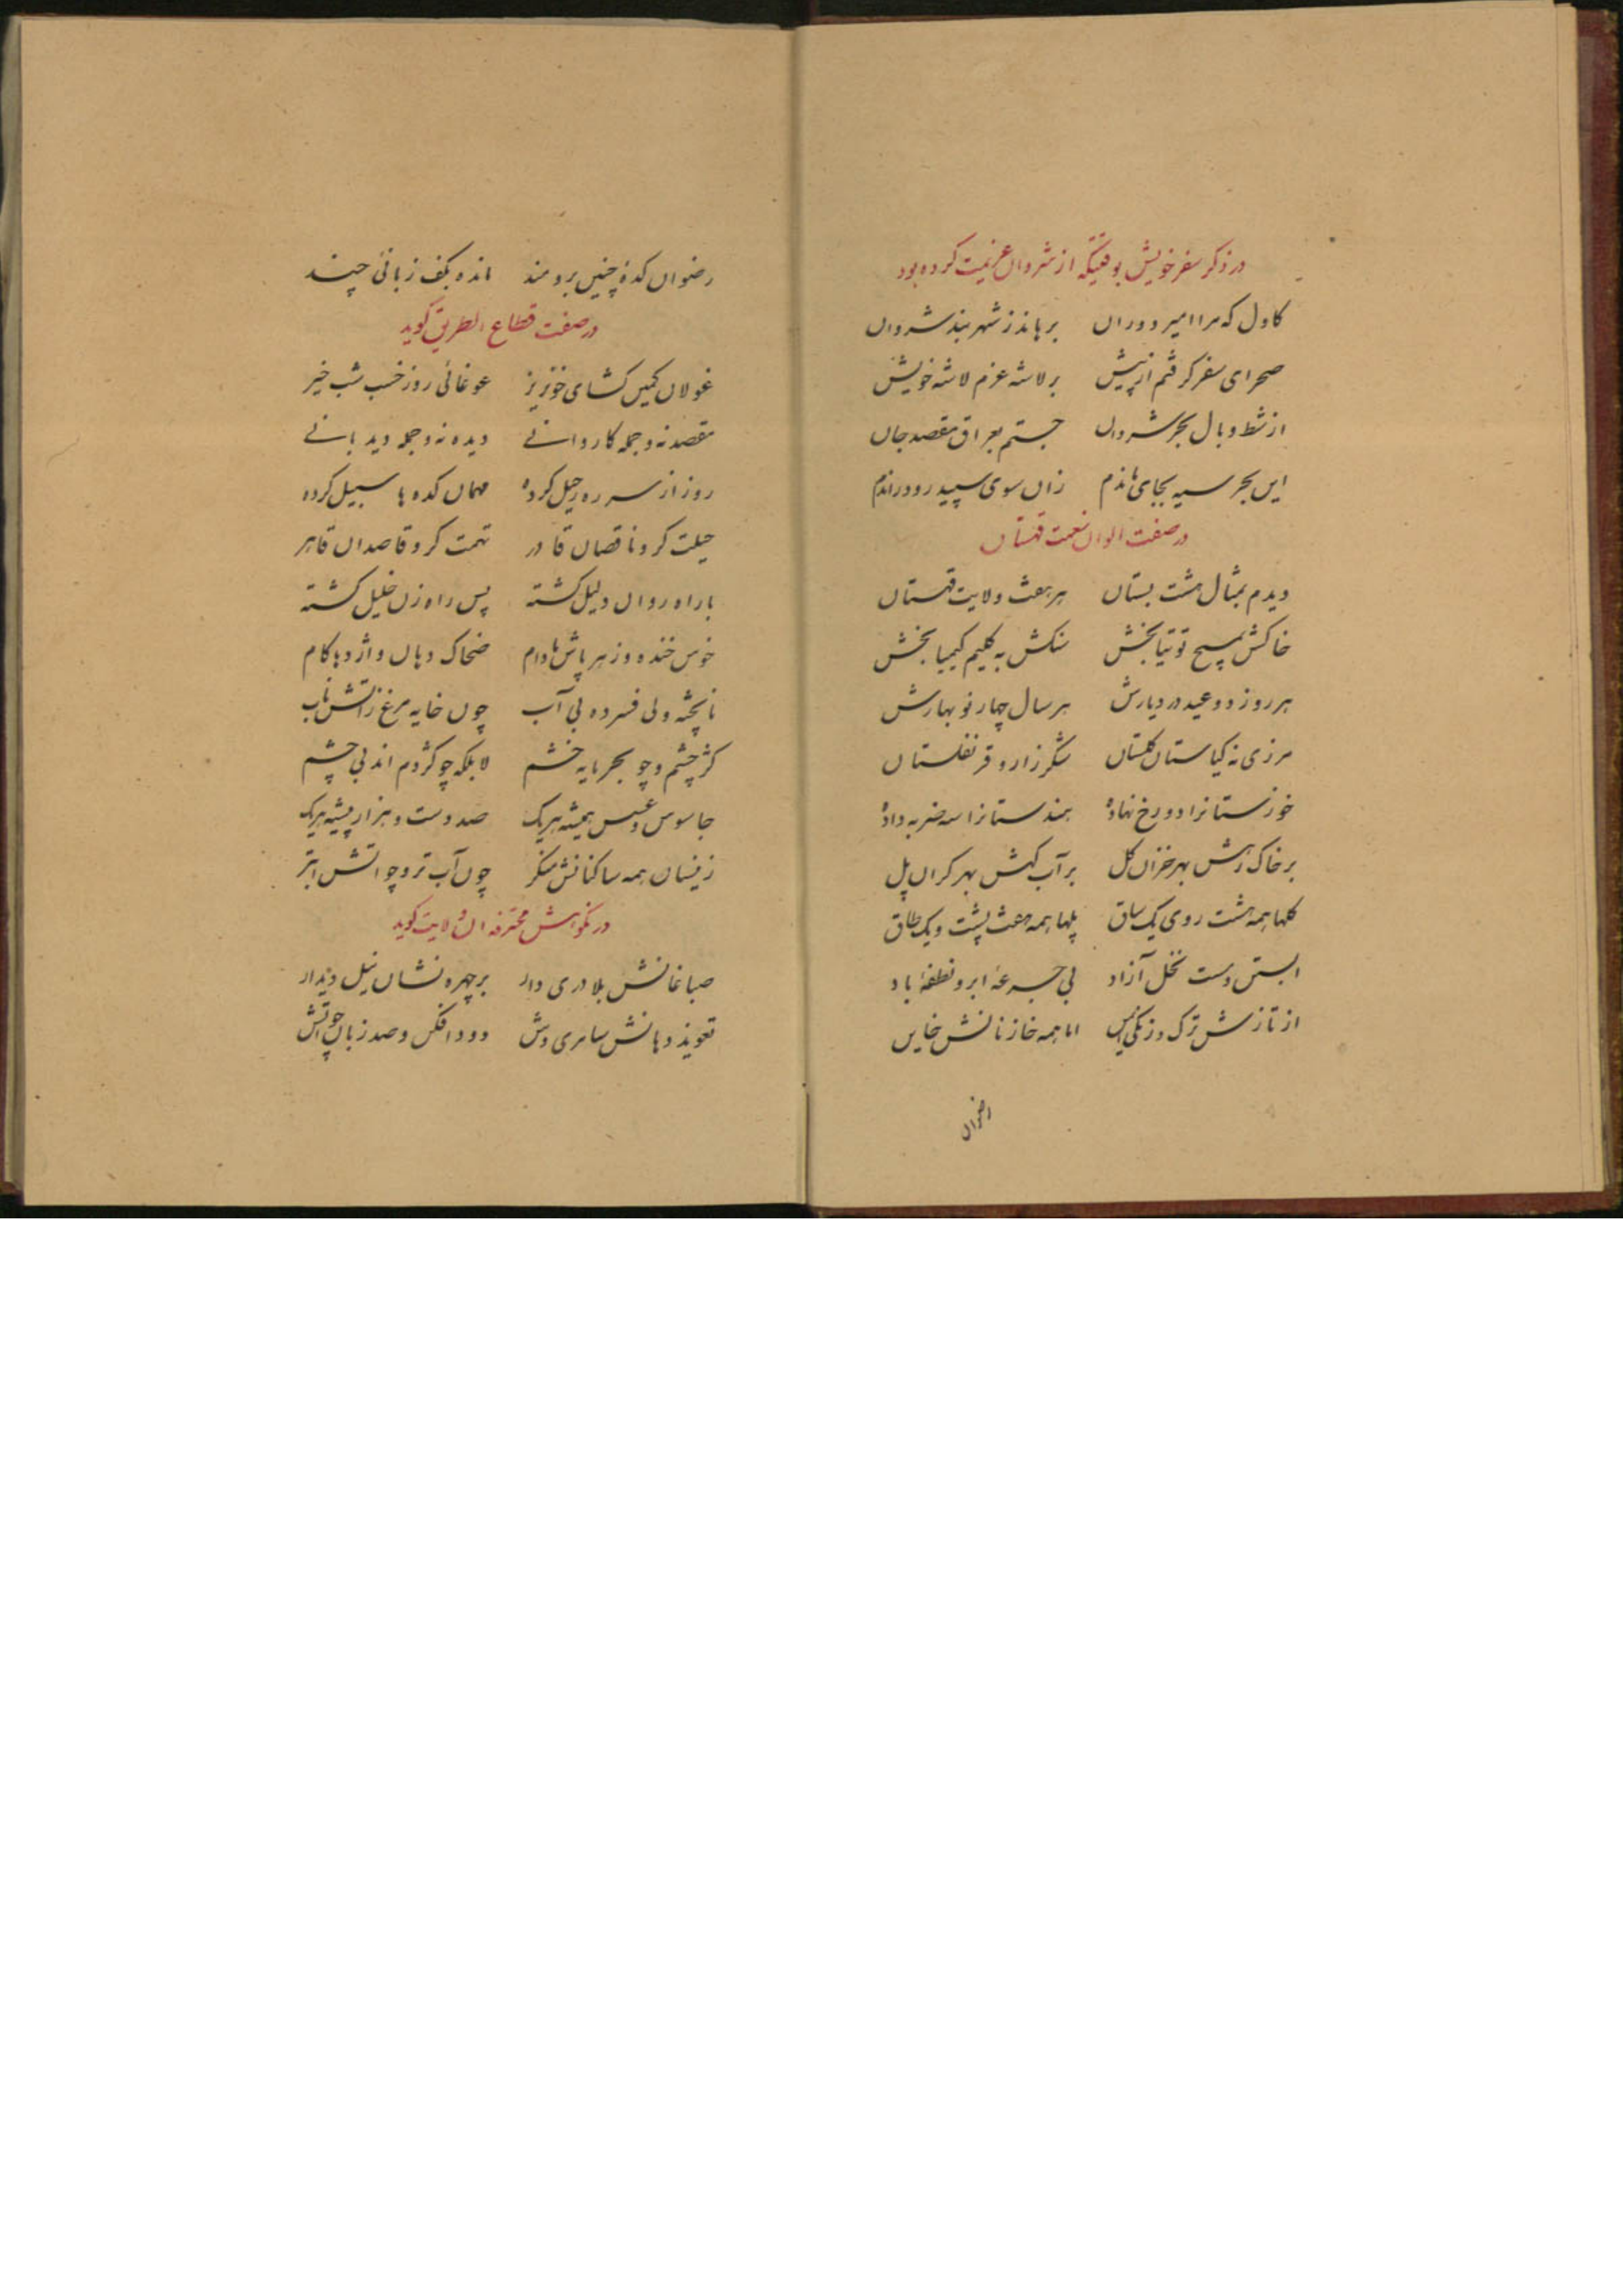 در ذکر سفر خویش بوقتیکه از شروان عزیمت کرده بود
کاول که مرا امیر دوران برهاند ز شهر بند شروان
صحرای سفر گرفتم از پیش بر لاشه عزم لاشه خویش
از شط وبال بحر شروان جستم بعراق مقصد جان
این بحر سیه بجای ماندم زان سوی سپید رود راندم
در صفت الوان نعمت قهستان
دیدم بمثال هشت بستان هر هفت ولایت قهستان
خاکش بمسیح توتیا بخش سنکش به کلیم کیمیا بخش
هر روز دو عید در دیارش هر سال چهار نو بهارش
مرزی نه کیاستان کلستان شکر زار و قرنفلستان
خوزستانرا دو رخ نهاده هندستانرا سه ضربه داده
بر خاک رهش بهر خزان کل بر آب کهش بهر کران پل
کلها همه هشت روی یک ساق پلها همه هفت پشت و یک طاق
ابستن دست نخل آزاد بی جرعهٔ ابر و نطفهٔ باد
از تازش ترک و زنکی ایمن اما همه خازنانش خاین
رضوان
رضوان کدهٔ چنین برومند مانده بکف زبانی چند
در صفت قطاع الطریق کوید
غولان کمین کشای خونریز غوغائی روز خسب شب خیز
مقصد نه و جمله کاروانی دیده نه و جمله دیدبانی
روز از سر ره رحیل کرده مهمان کده ها سبیل کرده
حیلت کر و ناقصان قادر تهمت کر و قاصدان قاهر
با راه روان دلیل کشته پس راه زن خلیل کشته
خوش خنده و زهر پاش مادام ضحاک دهان و اژدها کام
نا پخته ولی فسرده بی آب چون خایه مرغ ز آتش ناب
کژ چشم و چو بحر مایه خشم لا بلکه چو کژدم اند بی چشم
جاسوس و عسس همیشه هر یک صد دست و هزار پیشه هر یک
زینسان همه ساکنانش منکر چون آب تر و چو اتش ابتر
در نکوهش محترفه ان ولایت کوید
صباغانش بلادری دار بر چهره نشان نیل دیدار
تعویذ دهانش سامری وش دود افکن و صد زبان چو آتش